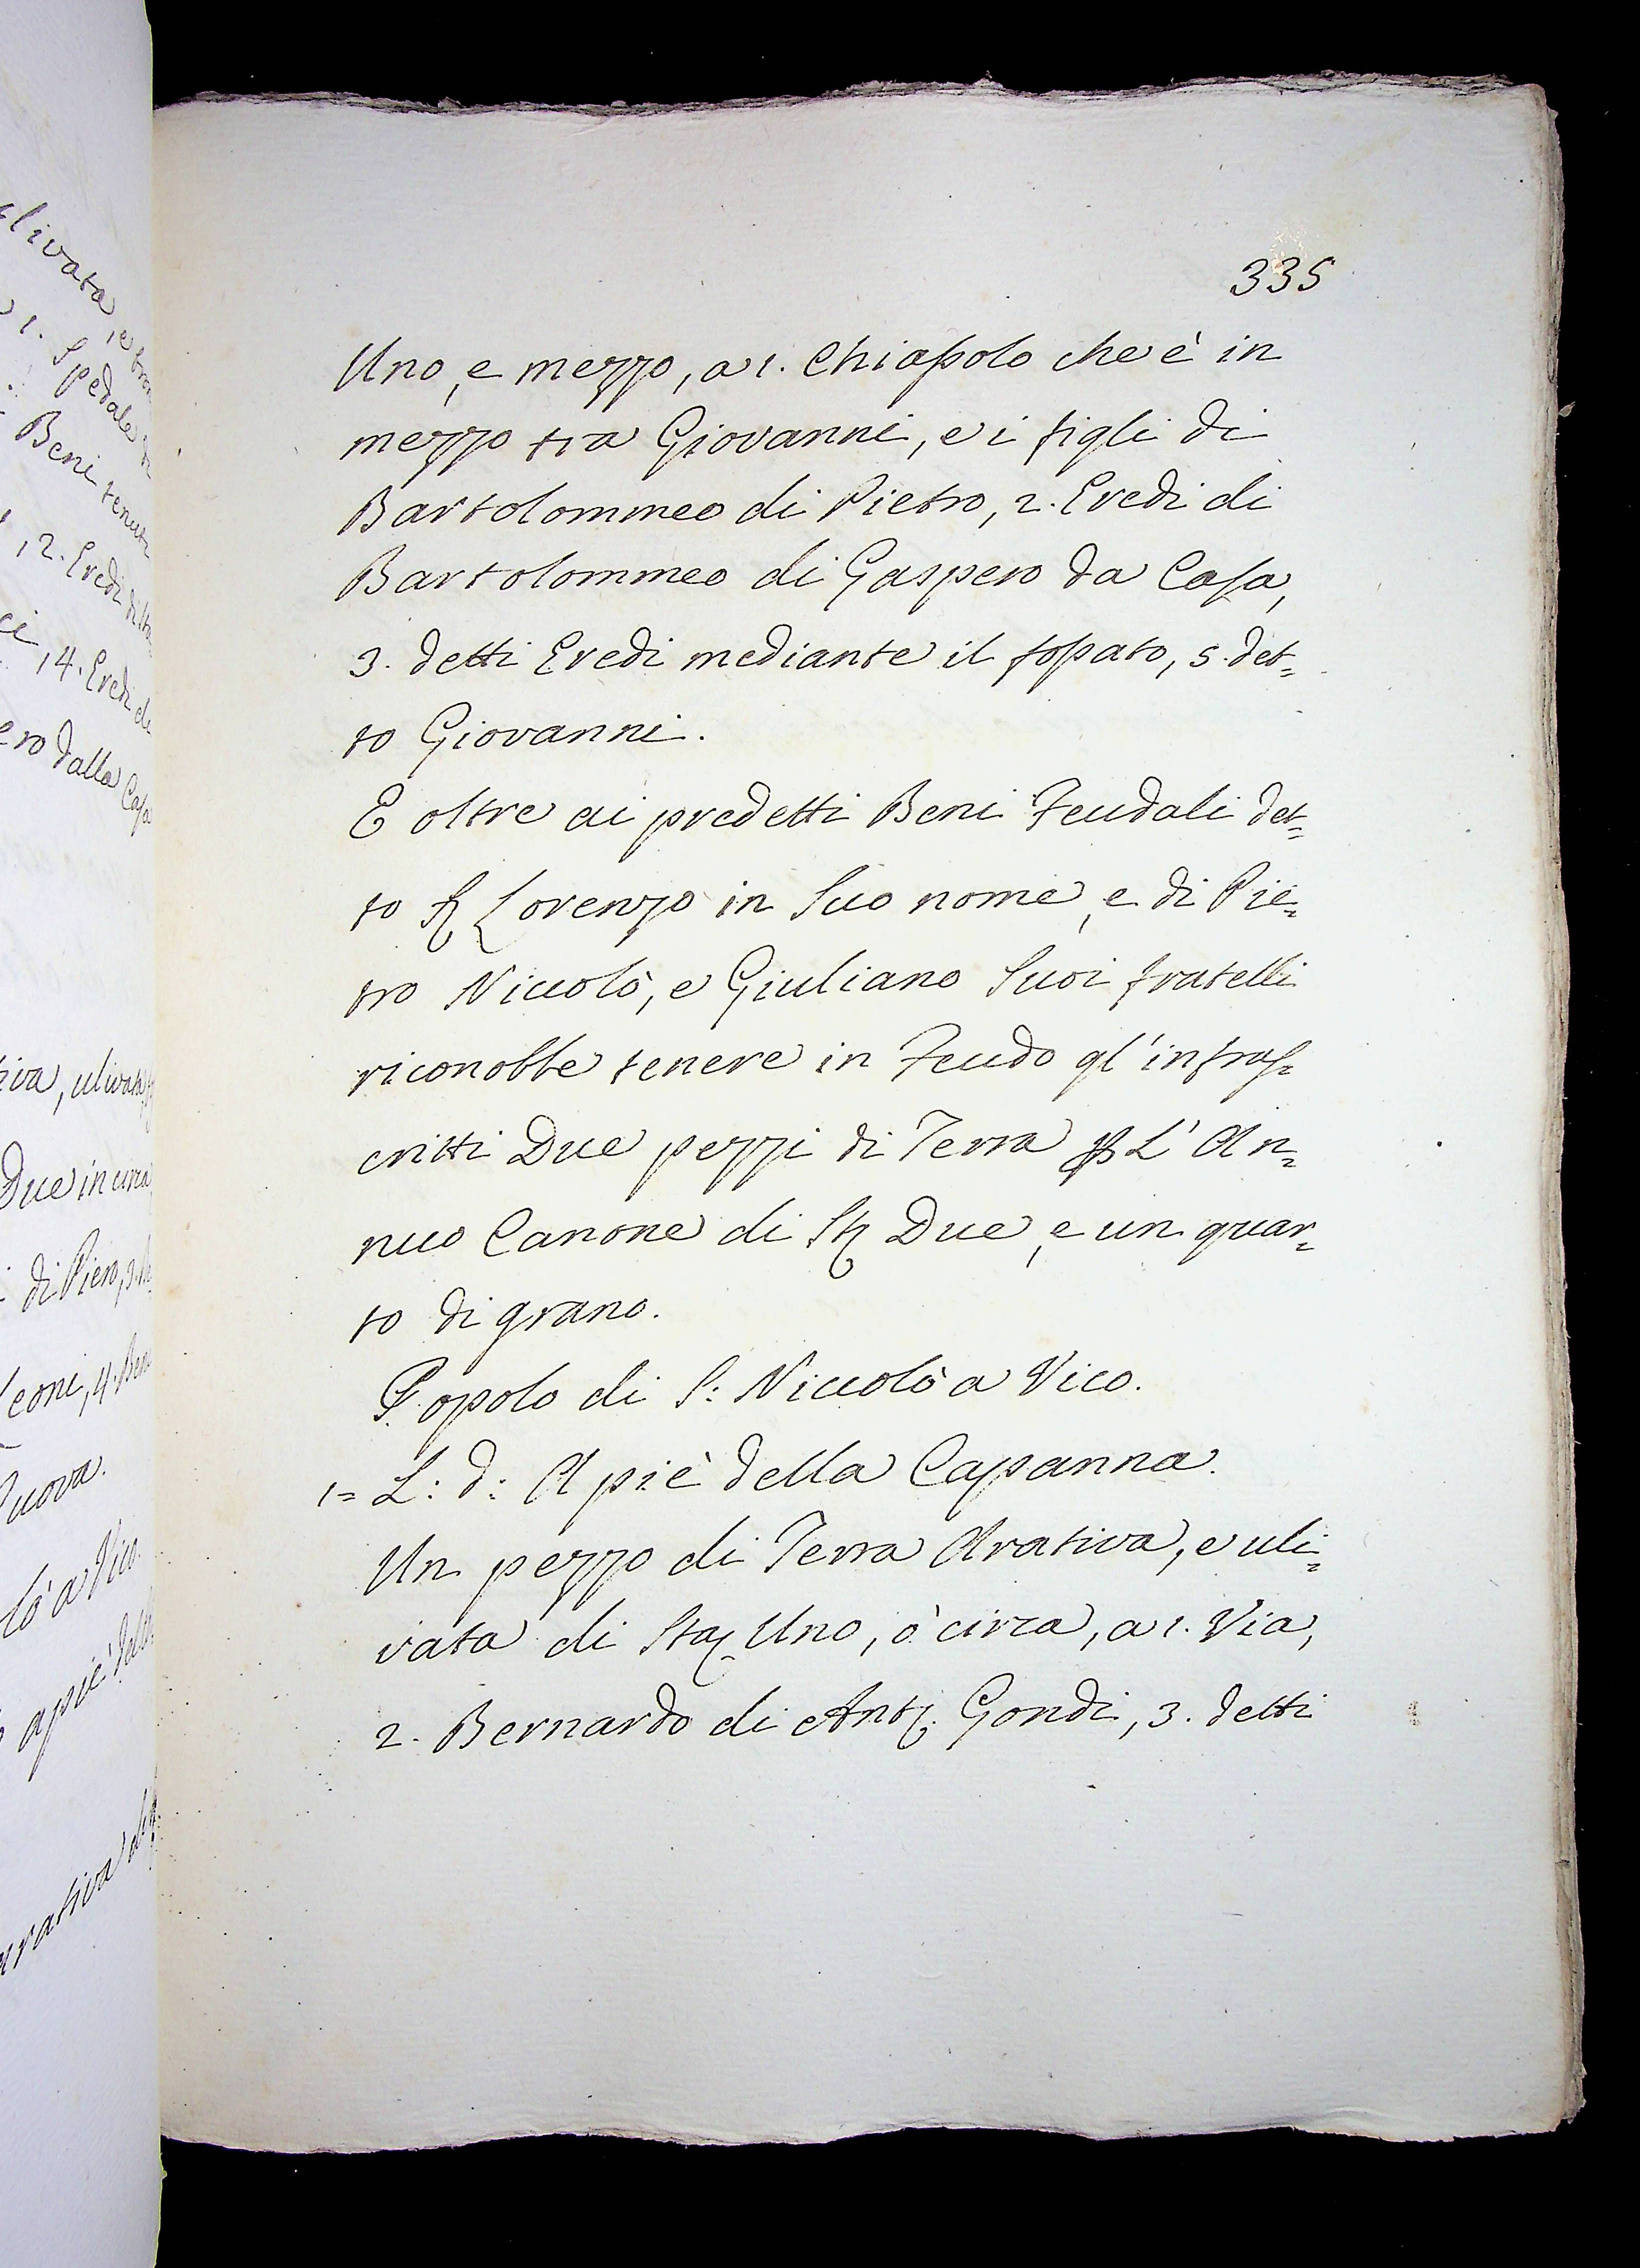 livata, e
1. Spedale
Beni tenuti
, 2. Eredi di
, 4. Eredi di
ero dalla Casa
iva, ulivata
Due in circa
di Piero, 3.
Leoni, 4. Beni
Nuova.
lò a Vico.
apiè della
arativa
335
Uno, e mezzo, a 1. Chiassolo che è in
mezzo tra Giovanni, e i figli di
Bartolommeo di Pietro, 2. Eredi di
Bartolommeo di Gaspero da Casa,
3. detti Eredi mediante il fossato, 5. det=
to Giovanni.
E oltre ai predetti Beni Feudali det=
to Lorenzo in Suo nome, e di Pie=
tro Niccolò, e Giuliano Suoi fratelli
riconobbe tenere in Feudo gl'infras=
critti Due pezzi di Terra p L'An=
nuo Canone di St Due, e un quar=
to di grano.
Popolo di S: Niccolò a Vico.
1= L: d: A piè della Capanna.
Un pezzo di Terra Arativa, e uli=
vata di Sta Uno, ò circa, a 1. Via,
2. Bernardo di Ant. Gondi, 3. detti